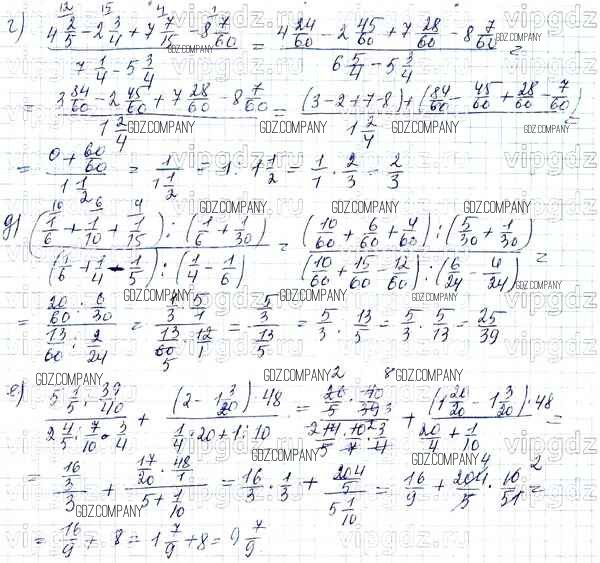 г) (4 2/5 - 2 3/4 + 7 7/15 - 8 7/60) / (7 1/4 - 5 3/4) = (4 24/60 - 2 45/60 + 7 28/60 - 8 7/60) / (6 5/4 - 5 3/4) =
= (3 84/60 - 2 45/60 + 7 28/60 - 8 7/60) / (1 2/4) = ((3-2+7-8) + (84/60 - 45/60 + 28/60 - 7/60)) / (1 2/4) =
= (0 + 60/60) / (1 1/2) = 1 / (1 1/2) = 1 : 1 1/2 = 1/1 · 2/3 = 2/3
д) ((1/6 + 1/10 + 1/15) : (1/6 + 1/30)) / ((1/6 + 1/4 - 1/5) : (1/4 - 1/6)) = ((10/60 + 6/60 + 4/60) : (5/30 + 1/30)) / ((10/60 + 15/60 - 12/60) : (6/24 - 4/24)) =
= (20/60 : 6/30) / (13/60 : 2/24) = (1/3 · 5/1) / (13/60 · 12/1) = (5/3) / (13/5) = 5/3 : 13/5 = 5/3 · 5/13 = 25/39
е) (5 1/5 : 39/40) / (2 4/5 : 7/10 · 3/4) + ((2 - 1 3/20) · 48) / (1/4 · 20 + 1 : 10) = (26/5 · 40/39) / (14/5 · 10/7 · 3/4) + ((1 20/20 - 1 3/20) · 48) / (20/4 + 1/10) =
= (16/3) / (3) + (17/20 · 48/1) / (5 + 1/10) = 16/3 · 1/3 + (204/5) / (5 1/10) = 16/9 + 204/5 · 10/51 =
= 16/9 + 8 = 1 7/9 + 8 = 9 7/9
GDZ.COMPANY
vipgdz.ru